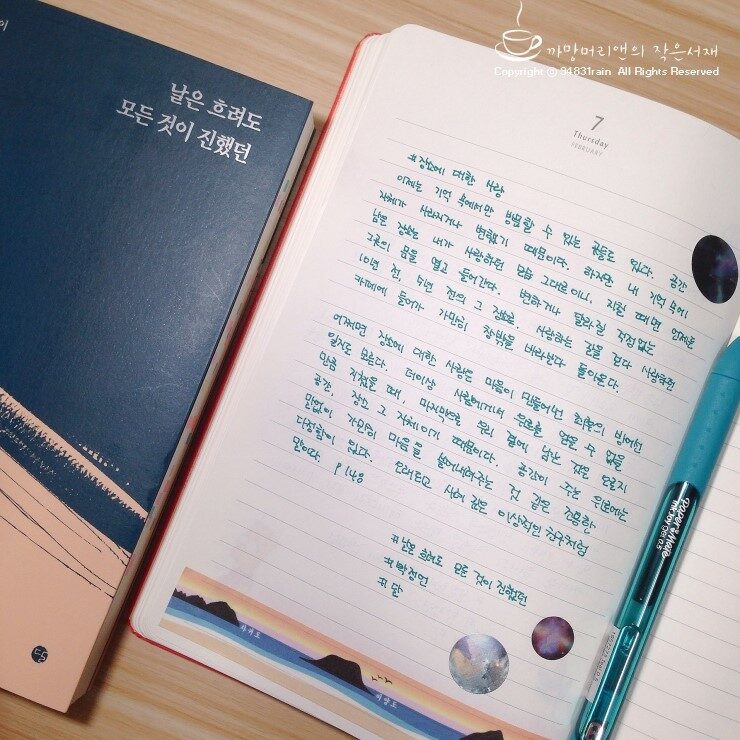 이
날은 흐려도
모든 것이 진했던
달
까망머리앤의 작은서재
Copyright ⓒ 94831rain All Rights Reserved
7
Thursday
FEBRUARY
#장소에 대한 사랑
이제는 기억 속에서만 방문할 수 있는 곳들도 있다. 공간
자체가 사라지거나 변했기 때문이다. 하지만 내 기억 속에
남은 장소는 내가 사랑하던 모습 그대로이니, 지칠 때면 언제든
그곳의 문을 열고 들어간다. 변하거나 달라질 걱정없는
10년 전, 수년 전의 그 장소로. 사랑하는 길을 걷다 사랑하던
카페에 들어가 가만히 창밖을 바라보다 돌아온다.
어쩌면 장소에 대한 사랑은 마음이 만들어낸 최후의 방어선
일지도 모른다. 더이상 사람에게서 위로를 얻을 수 없을
만큼 지쳤을 때, 마지막으로 우리 곁에 남는 것은 오로지
공간, 장소 그 자체이기 때문이다. 공간이 주는 위로에는
말없이 가만히 마음을 쓸어내려주는 것 같은 조용한
다정함이 있다. 오래되고 사려 깊은 이상적인 친구처럼
말이다. p 148
#날은 흐려도 모든 것이 진했던
#박정언
#달
차귀도
비양도
Paper Mate
InkJoy Gel 0.5